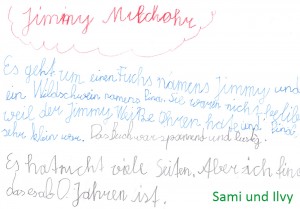 Jimmy Milchohr
Es geht um einen Fuchs namens Jimmy und
ein Wildschwein namens Pina. Sie waren nicht
weil der Jimmy Ohren hatte und Pina
sehr klein war. Das Buch war spannend und lustig.
Es hat nicht viele Seiten. Aber ich fin
das es ab Jahren ist.
Sami und Ilvy